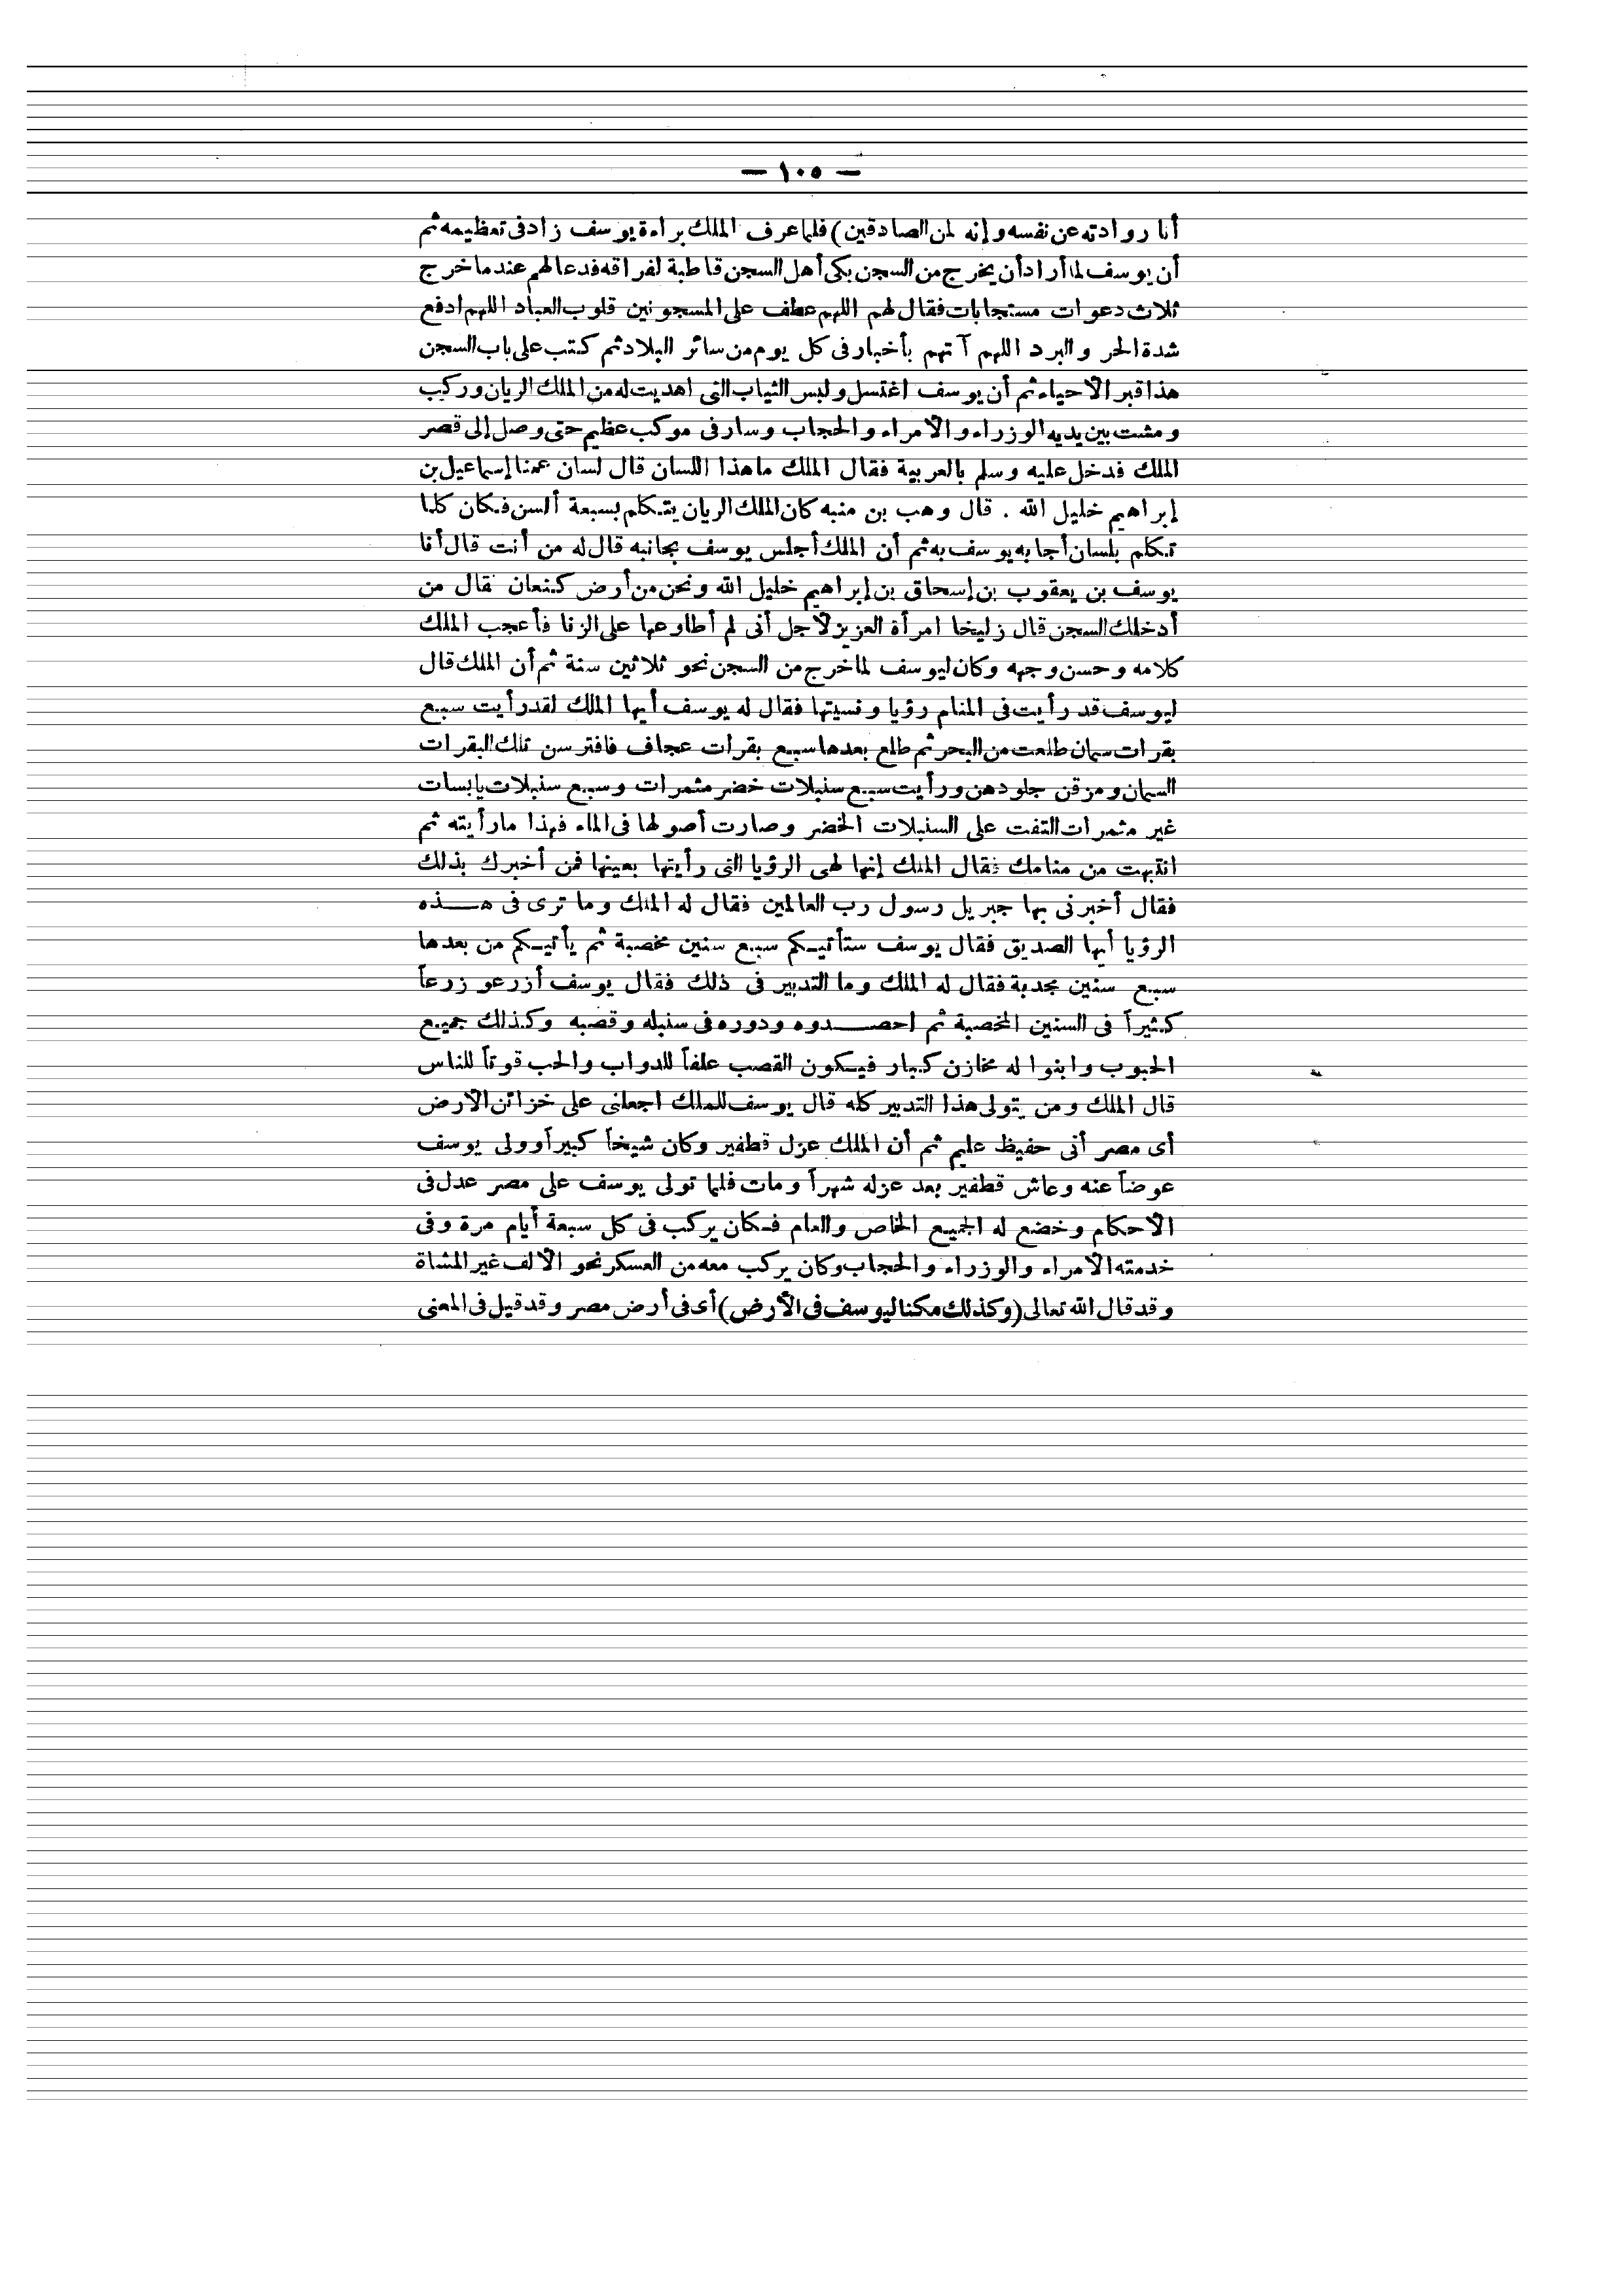 — ١٠٥ —
أنا روادته عن نفسه وإنه لمن الصادقين) فلما عرف الملك براءة يوسف زاد فى تعظيمه ثم
أن يوسف لما أراد أن يخرج من السجن بكى أهل السجن قاطبة لفراقه فدعا لهم عند ما خرج
ثلاث دعوات مستجابات فقال لهم اللهم عطف على المسجونين قلوب العباد اللهم ادفع
شدة الحر والبرد اللهم آتهم بأخبار فى كل يوم من سائر البلاد ثم كتب على باب السجن
هذا قبر الاحياء ثم أن يوسف اغتسل ولبس الثياب التى اهديت له من الملك الريان وركب
ومشت بين يديه الوزراء والامراء والحجاب وسار فى موكب عظيم حتى وصل إلى قصر
الملك فدخل عليه وسلم بالعربية فقال الملك ما هذا اللسان قال لسان عمنا إسماعيل بن
إبراهيم خليل الله . قال وهب بن منبه كان الملك الريان يتكلم بسبعة ألسن فكان كلما
تكلم بلسان أجابه يوسف به ثم أن الملك أجلس يوسف بجانبه قال له من أنت قال أنا
يوسف بن يعقوب بن إسحاق بن إبراهيم خليل الله ونحن من أرض كنعان فقال من
أدخلك السجن قال زليخا امرأة العزيز لاجل أنى لم أطاوعها على الزنا فأعجب الملك
كلامه وحسن وجهه وكان ليوسف لما خرج من السجن نحو ثلاثين سنة ثم أن الملك قال
ليوسف قد رأيت فى المنام رؤيا ونسيتها فقال له يوسف أيها الملك لقد رأيت سبع
بقرات سمان طلعت من البحر ثم طلع بعدها سبع بقرات عجاف فافترسن تلك البقرات
السمان ومزقن جلودهن ورأيت سبع سنبلات خضر مثمرات وسبع سنبلات يابسات
غير مثمرات التفت على السنبلات الخضر وصارت أصولها فى الماء فهذا ما رأيته ثم
انتبهت من منامك فقال الملك إنها لهى الرؤيا التى رأيتها بعينها فمن أخبرك بذلك
فقال أخبرنى بها جبريل رسول رب العالمين فقال له الملك وما ترى فى هـــذه
الرؤيا أيها الصديق فقال يوسف ستأتيكم سبع سنين مخصبة ثم يأتيكم من بعدها
سبع سنين مجدبة فقال له الملك وما التدبير فى ذلك فقال يوسف أزرعو زرعاً
كثيراً فى السنين المخصبة ثم احصـــدوه ودوره فى سنبله وقصبه وكذلك جميع
الحبوب وابنوا له مخازن كبار فيكون القصب علفاً للدواب والحب قوتاً للناس
قال الملك ومن يتولى هذا التدبير كله قال يوسف للملك اجعلنى على خزائن الارض
أى مصر أنى حفيظ عليم ثم أن الملك عزل قطفير وكان شيخاً كبيراً وولى يوسف
عوضاً عنه وعاش قطفير بعد عزله شهراً ومات فلما تولى يوسف على مصر عدل فى
الاحكام وخضع له الجميع الخاص والعام فكان يركب فى كل سبعة أيام مرة وفى
خدمته الامراء والوزراء والحجاب وكان يركب معه من العسكر نحو الالف غير المشاة
وقد قال الله تعالى (وكذلك مكنا ليوسف فى الأرض) أى فى أرض مصر وقد قيل فى المعنى